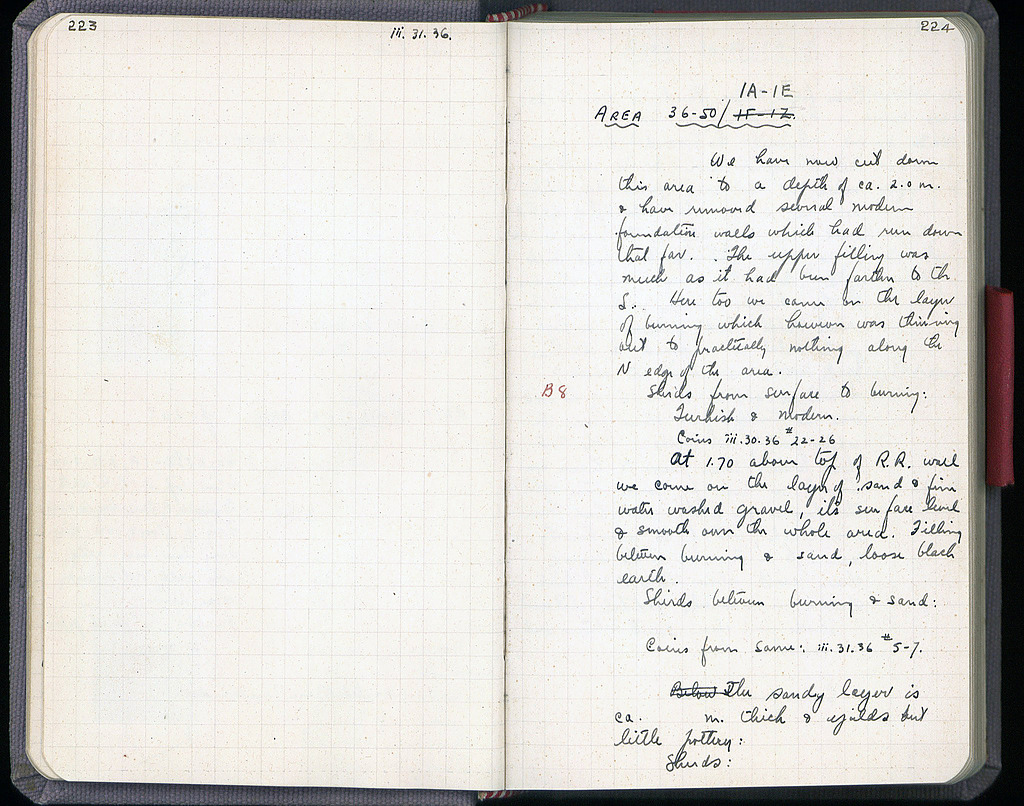 223
iii. 31. 36.
224
1A-1E
AREA 36-50/ 1F-1Z
We have now cut down
this area to a depth of ca. 2.0 m.
& have removed several modern
foundation walls which had run down
that far. The upper filling was
much as it had been farther to the
S. Here too we came on the layer
of burning which however was thinning
out to practically nothing along the
N edge of the area.
B8
Sherds from surface to burning:
Turkish & modern.
Coins iii.30.36 # 22-26
At 1.70 above top of R.R. wall
we come on the layer of sand & fine
water washed gravel, its surface level
& smooth over the whole area. Filling
between burning & sand, loose black
earth.
Sherds between burning & sand:
Coins from same: iii.31.36 # 5-7.
Below The sandy layer is
ca. m. thick & yields but
little pottery:
Sherds: